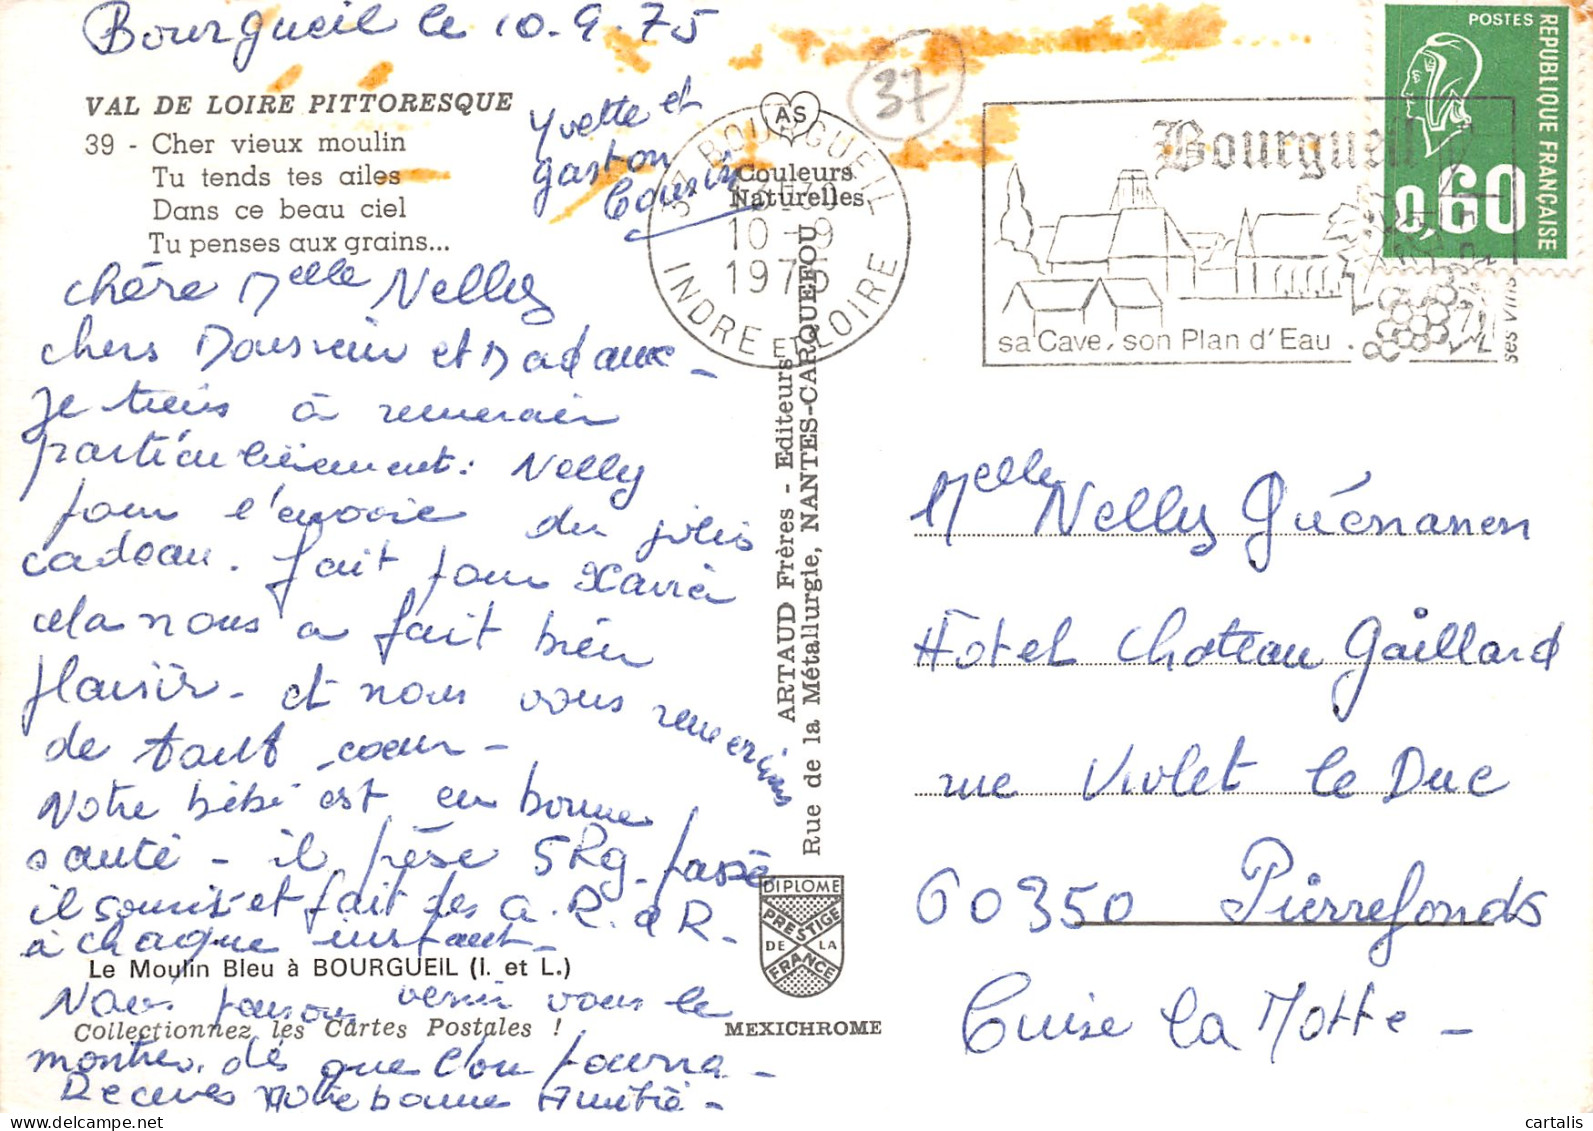 Bourgueil le 10.9.75
VAL DE LOIRE PITTORESQUE
39 - Cher vieux moulin
Tu tends tes ailes
Dans ce beau ciel
Tu penses aux grains...
Yvette et
gaston
Cousin
37
AS
Couleurs
Naturelles
37 BOURGUEIL
10-9
1975
INDRE ET LOIRE
Bourgueil
sa Cave, son Plan d'Eau
ses Vins
POSTES
REPUBLIQUE FRANÇAISE
0,60
chère Melle Nelly
chers Monsieur et Madame -
Je tiens à remercier
particulièrement: Nelly
pour l'envoie du jolis
cadeau. fait pour Xavier
cela nous a fait bien
plaisir - et nous vous remercions
de tout coeur -
Notre bébé est en bonne
santé - il pèse 5Kg passé
il souris et fait des a. R. e R.
à chaque instant -
Le Moulin Bleu à BOURGUEIL (I. et L.)
Nous pensons venir vous le
Collectionnez les Cartes Postales !
montrer. dès que l'on pourra -
Recevez notre bonne Amitié -
ARTAUD Frères - Editeurs
Rue de la Métallurgie, NANTES-CARQUEFOU
DIPLOME
PRESTIGE
DE LA
FRANCE
MEXICHROME
Melle Nelly Guénanen
Hotel Chateau Gaillard
rue Violet le Duc
60350 Pierrefonds
Cuise la Motte -
cartalis
© delcampe.net